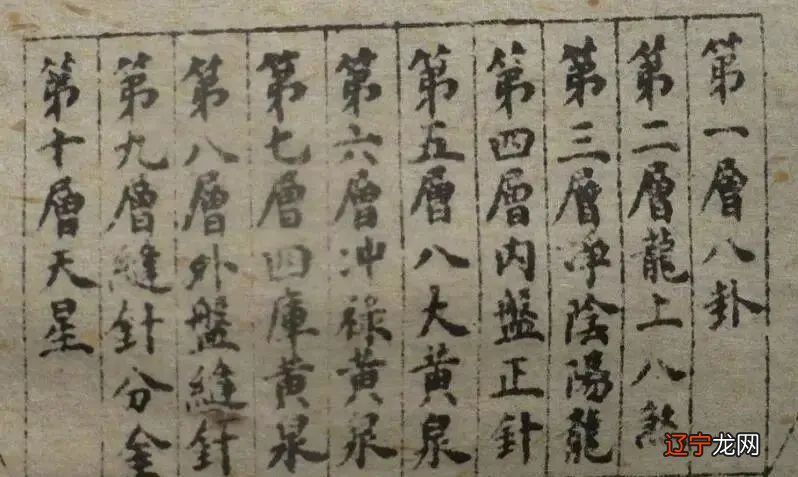 第一層八卦
第二層龍上八煞
第三層淨陰陽龍
第四層內盤正針
第五層八大黃泉
第六層冲祿黃泉
第七層四庫黃泉
第八層外盤縫針
第九層縫針分金
第十層天星
辽宁龙网